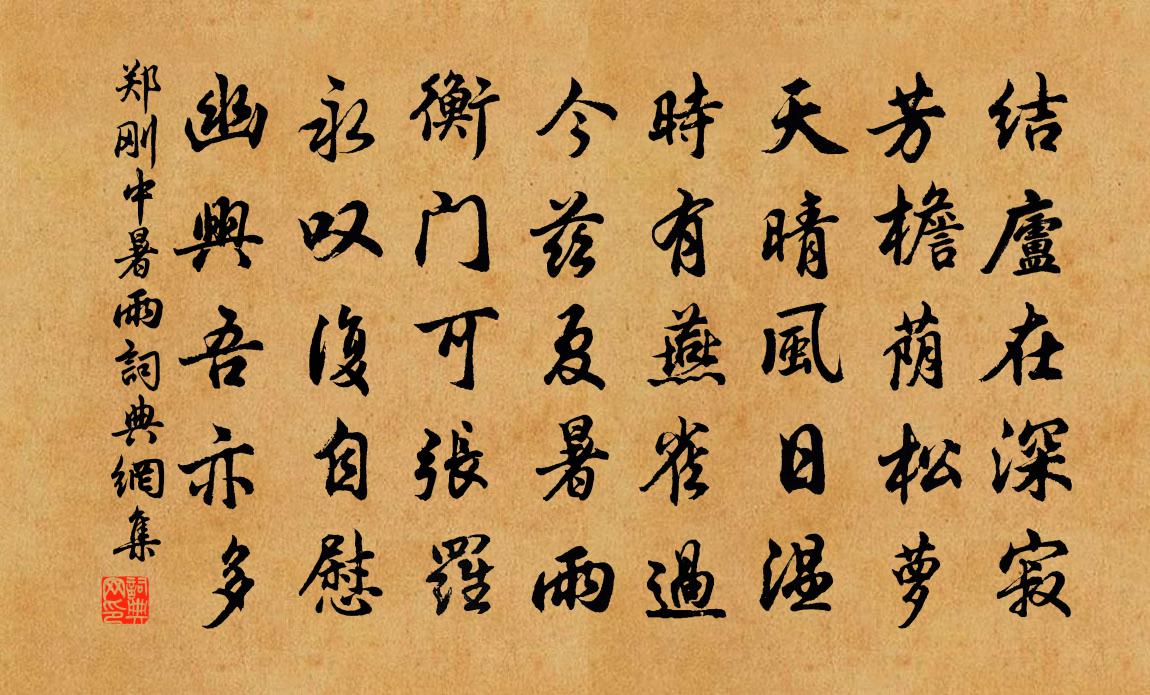 结廬在深寂
芳檐荫松萝
天晴風日温
時有燕雀過
今兹夏暑雨
衡门可張羅
永叹復自慰
幽興吾亦多
郑刚中暑雨詞典網集
詞典网印